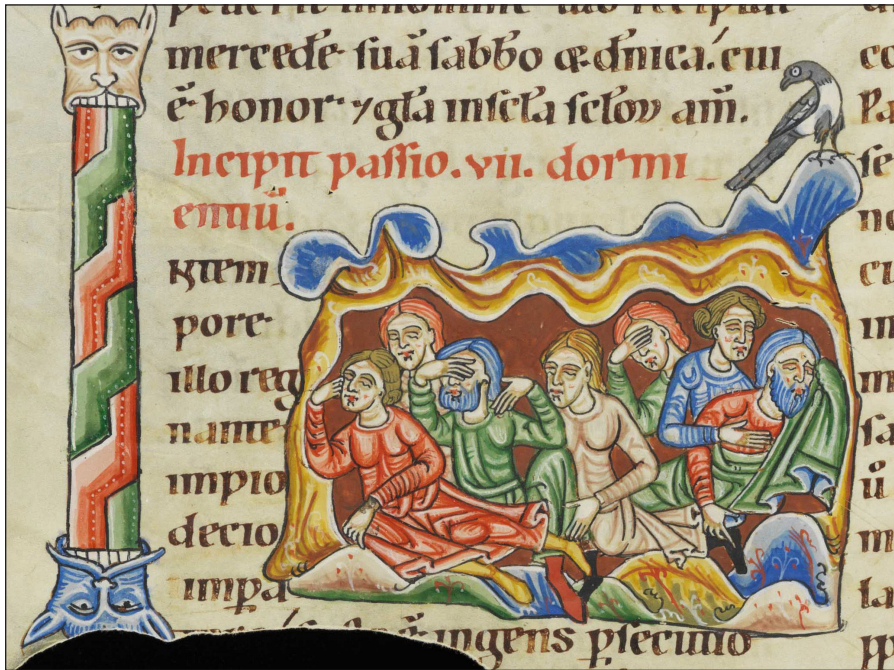 mercede suā sabbo & dnica. cui
ē honor ⁊ gła in scła scłoꝝ am̄.
Incipit passio. vii. dormi
entiū.
tem
pore
illo reg
nante
impio
decio
impa
ingens psecutio